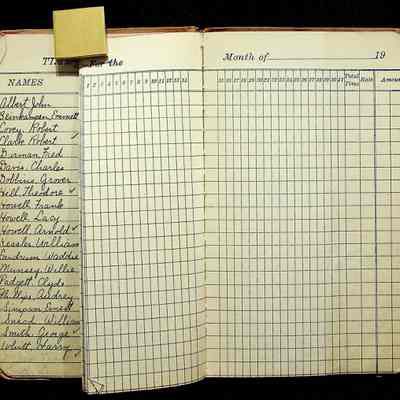 TIME For the
Month of 19
NAMES
1 2 3 4 5 6 7 8 9 10 11 12 13 14
15 16 17 18 19 20 21 22 23 24 25 26 27 28 29 30 31 Total Time Rate Amount
Albert John
Emmett
Covey Robert
Clarke Robert ✓
Dorman Fred
Davis Charles
Dobbins Grover
Hill Theodore ✓
Howell Frank
Howell Lacy
Howell Arnold ✓
Kessler William
Landrum Waddie
Munsey Willie
Padgett Clyde
Phillips Audrey
Simpson Ernest
William
Smith George ✓
Whitt Harry ✓